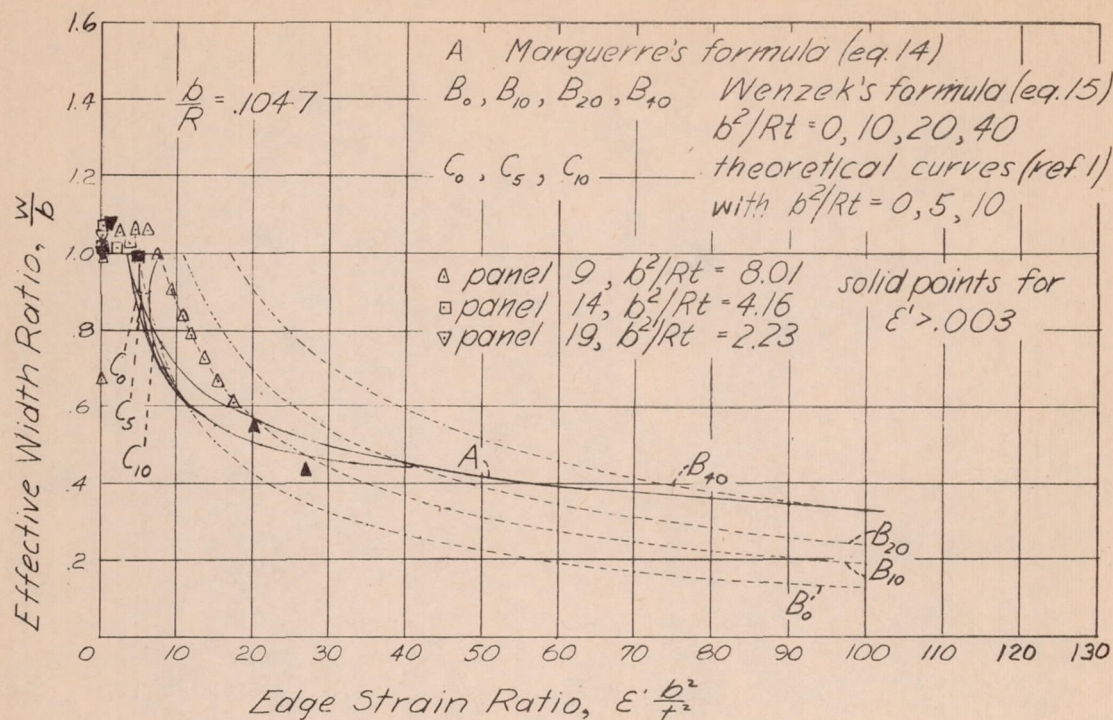 1.6
1.4
1.2
1.0
.8
.6
.4
.2
Effective Width Ratio, w/b
b/R = .1047
A Marguerre's formula (eq.14)
B₀, B₁₀, B₂₀, B₄₀ Wenzek's formula (eq.15)
b²/Rt = 0, 10, 20, 40
C₀, C₅, C₁₀ theoretical curves (ref 1)
with b²/Rt = 0, 5, 10
△ panel 9, b²/Rt = 8.01
□ panel 14, b²/Rt = 4.16
▽ panel 19, b²/Rt = 2.23
solid points for
ε' > .003
C₀
C₅
C₁₀
A
B₄₀
B₂₀
B₁₀
B₀
0 10 20 30 40 50 60 70 80 90 100 110 120 130
Edge Strain Ratio, ε' b²/t²